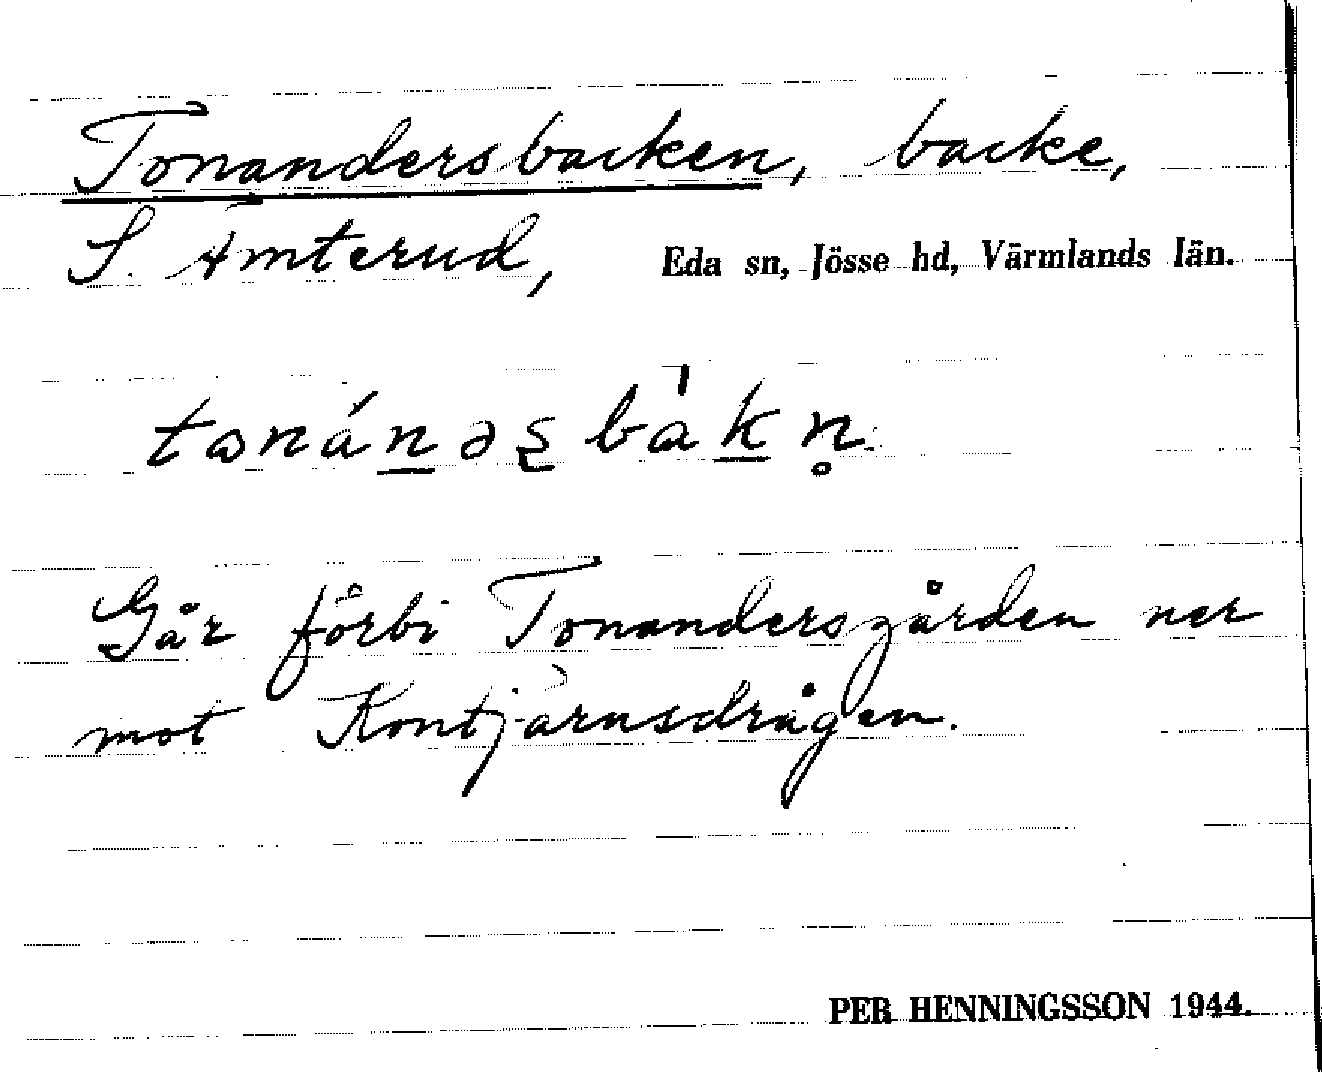 Tonandersbacken, backe,
S. Ämterud, Eda sn, Jösse hd, Värmlands län.
tɷnánəsbàkn̥
Går förbi Tonandersgården ner
mot Kontjärnsdrågen.
PER HENNINGSSON 1944.